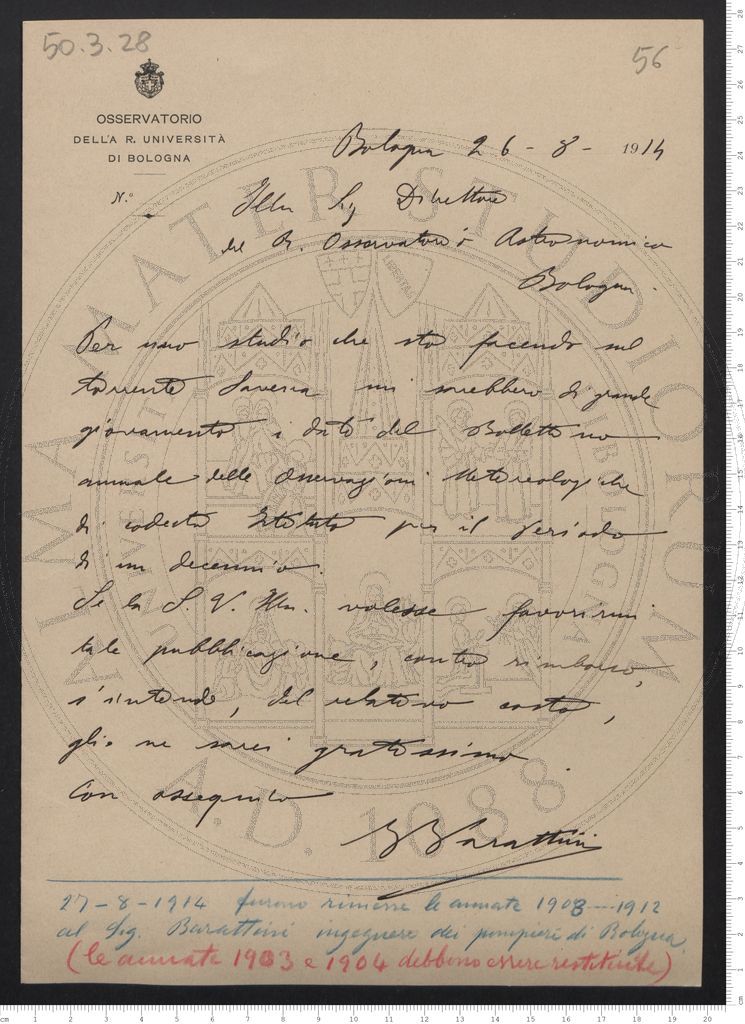 50.3.28
56
OSSERVATORIO
DELLA R. UNIVERSITÀ
DI BOLOGNA
N.°
Bologna 26-8-1914
Illm Sig Direttore
del R. Osservatorio Astronomico
Bologna.
Per uno studio che sto facendo sul
torrente Savena mi sarebbero di grande
giovamento i dati del Bollettino
annuale delle Osservazioni Metereologiche
di codesto Istituto per il periodo
di un decennio.
Se la S. V. Illm. volesse favorirmi
tale pubblicazione, contro rimborso,
s'intende, del relativo costo,
glie ne sarei gratissimo.
Con ossequio
Barattini
27-8-1914 furono rimesse le annate 1903-1912
al Sig. Barattini ingegnere dei pompieri di Bologna
(le annate 1903 e 1904 debbono essere restituite)
ALMA MATER STUDIORUM
A.D. 1088
LIBERTAS